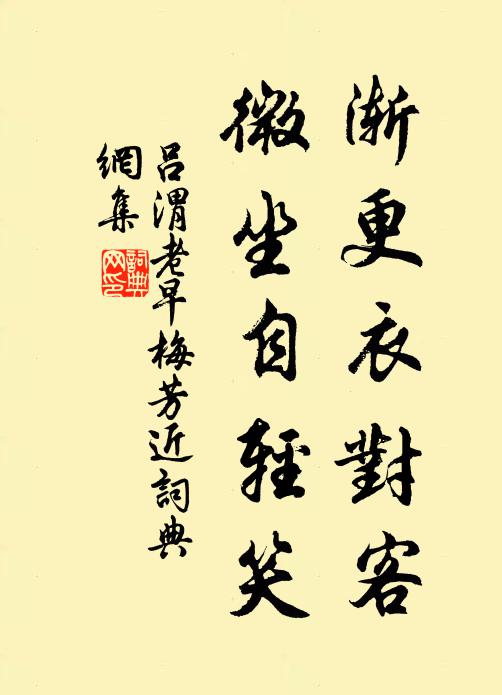 漸更衣對客
微坐自輕笑
呂渭老早梅芳近詞典
網集
詞典
網印